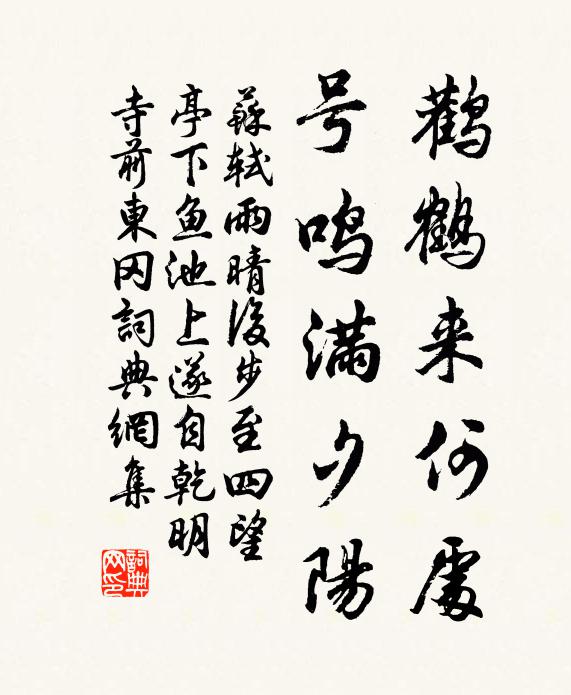 鸛鶴来何處
号鸣满夕陽
蘇轼雨晴後步至四望
亭下鱼池上遂自乾明
寺前東冈詞典網集
詞典网印